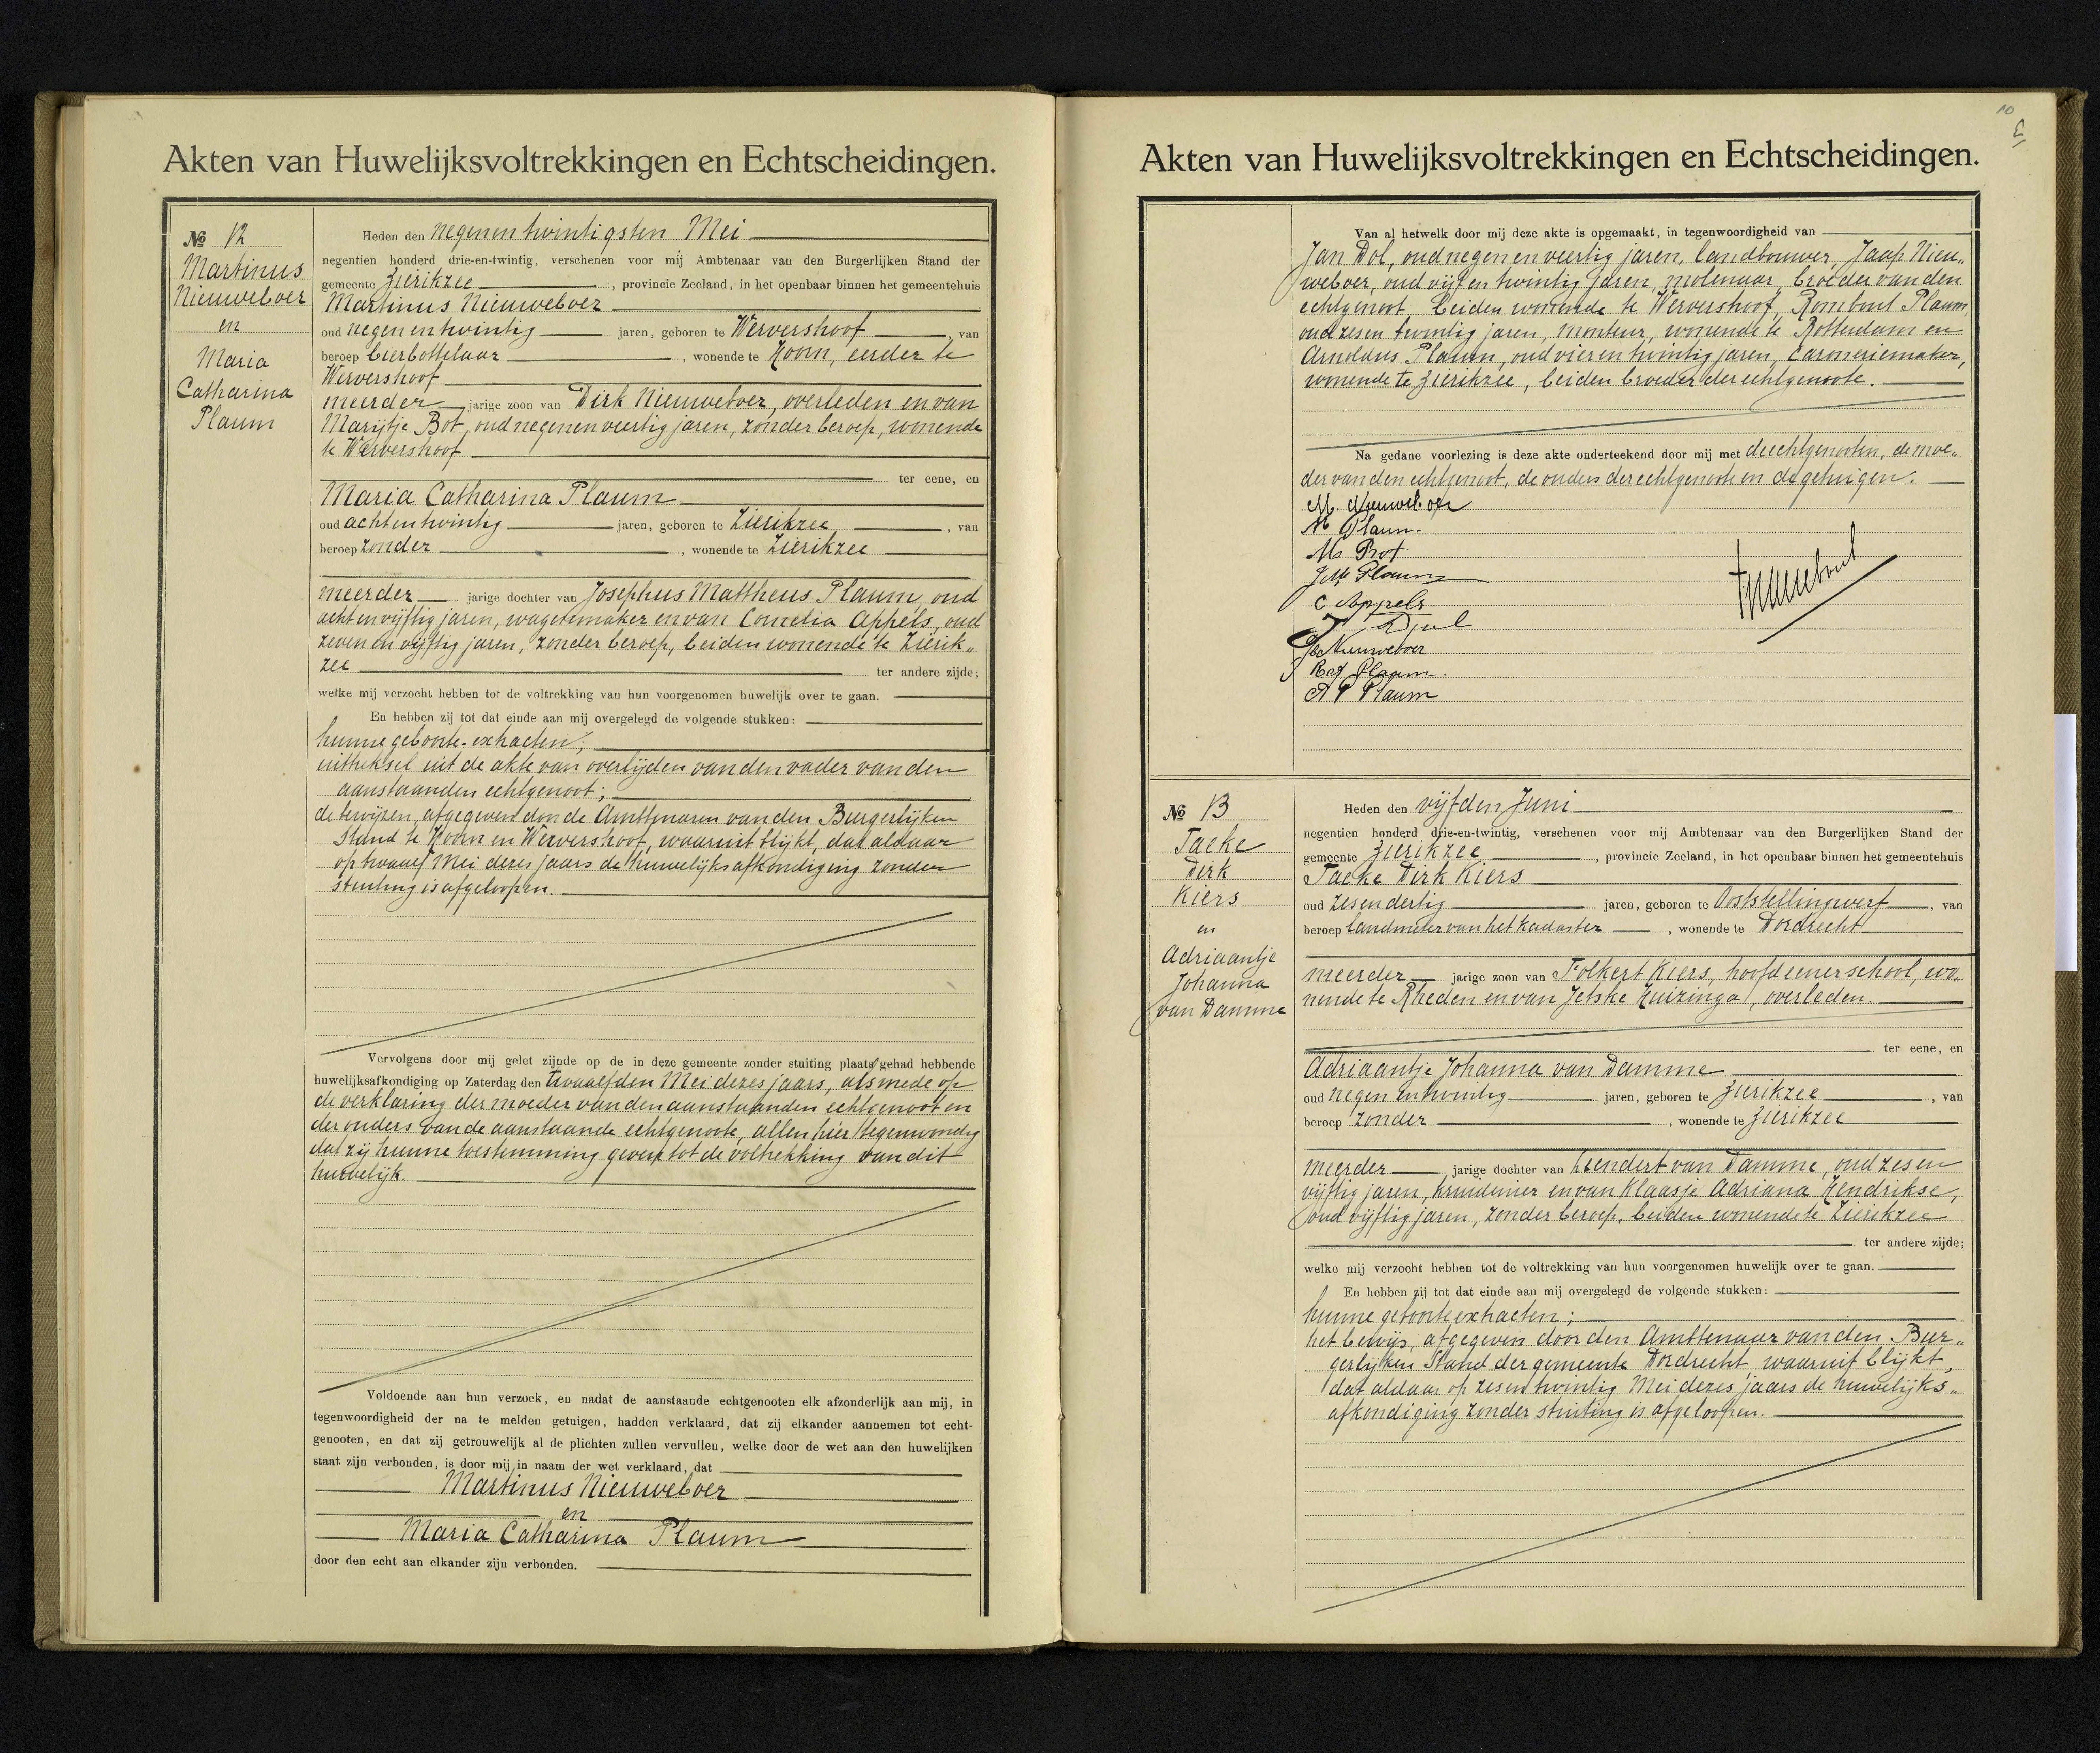 Akten van Huwelijksvoltrekkingen en Echtscheidingen.
No 12
Martinus
Nieuweboer
en
Maria
Catharina
Plaum
Heden den negenentwintigsten Mei
negentien honderd drie-en-twintig, verschenen voor mij Ambtenaar van den Burgerlijken Stand der
gemeente Zierikzee, provincie Zeeland, in het openbaar binnen het gemeentehuis
Martinus Nieuweboer
oud negen en twintig jaren, geboren te Wervershoof, van
beroep bierbottelaar, wonende te Hoorn, eerder te
Wervershoof
meerder jarige zoon van Dirk Nieuweboer, overleden en van
Marijtje Bot, oud negenenveertig jaren, zonder beroep, wonende
te Wervershoof
ter eene, en
Maria Catharina Plaum
oud achtentwintig jaren, geboren te Zierikzee, van
beroep zonder, wonende te Zierikzee
meerder jarige dochter van Josephus Mattheus Plaum, oud
acht en vijftig jaren, wagenmaker en van Cornelia Appels, oud
zeven en vijftig jaren, zonder beroep, beiden wonende te Zierik„
zee ter andere zijde;
welke mij verzocht hebben tot de voltrekking van hun voorgenomen huwelijk over te gaan.
En hebben zij tot dat einde aan mij overgelegd de volgende stukken:
hunne geboorte-extracten;
uittreksel uit de akte van overlijden van den vader van den
aanstaanden echtgenoot;
de bewijzen, afgegeven door de Ambtenaren van den Burgerlijken
Stand te Hoorn en Wervershoof, waaruit blijkt, dat aldaar
op twaalf Mei dezes jaars de huwelijksafkondiging zonder
stuiting is afgeloopen.
Vervolgens door mij gelet zijnde op de in deze gemeente zonder stuiting plaats gehad hebbende
huwelijksafkondiging op Zaterdag den twaalfden Mei dezes jaars, alsmede op
de verklaring der moeder van den aanstaanden echtgenoot en
der ouders van de aanstaande echtgenoote, allen hier tegenwoordig
dat zij hunne toestemming geven tot de voltrekking van dit
huwelijk.
Voldoende aan hun verzoek, en nadat de aanstaande echtgenooten elk afzonderlijk aan mij, in
tegenwoordigheid der na te melden getuigen, hadden verklaard, dat zij elkander aannemen tot echt-
genooten, en dat zij getrouwelijk al de plichten zullen vervullen, welke door de wet aan den huwelijken
staat zijn verbonden, is door mij in naam der wet verklaard, dat
Martinus Nieuweboer
en
Maria Catharina Plaum
door den echt aan elkander zijn verbonden.
10
Akten van Huwelijksvoltrekkingen en Echtscheidingen.
Van al hetwelk door mij deze akte is opgemaakt, in tegenwoordigheid van
Jan Dol, oud negen en veertig jaren, landbouwer, Jaap Nieu„
weboer, oud vijf en twintig jaren, molenaar, broeder van den
echtgenoot beiden wonende te Wervershoof, Rombout Plaum,
oud zesen twintig jaren, monteur, wonende te Rotterdam en
Arnoldus Plaum, oud vier en twintig jaren, carosseriemaker,
wonende te Zierikzee, beiden broeder der echtgenoote.
Na gedane voorlezing is deze akte onderteekend door mij met de echtgenooten, de moe„
der van den echtgenoot, de ouders der echtgenoote en de getuigen.
M. Nieuweboer
M Plaum.
M. Bot
J M Plaum
C Appels
Jb Nieuweboer
Plaum.
A P Plaum
No 13
Taeke
Dirk
Kiers
en
Adriaantje
Johanna
van Damme
Heden den vijfden Juni
negentien honderd drie-en-twintig, verschenen voor mij Ambtenaar van den Burgerlijken Stand der
gemeente Zierikzee, provincie Zeeland, in het openbaar binnen het gemeentehuis
Taeke Dirk Kiers
oud zesendertig jaren, geboren te Ooststellingwerf, van
beroep landmeter van het kadaster, wonende te Dordrecht
meerder jarige zoon van Folkert Kiers, hoofd eener school, wo„
nende te Rheden en van Jetske Huizinga, overleden.
ter eene, en
Adriaantje Johanna van Damme
oud negen en twintig jaren, geboren te Zierikzee, van
beroep zonder, wonende te Zierikzee
meerder jarige dochter van Leendert van Damme, oud zes en
vijftig jaren, kruidenier en van Klaasje Adriana Hendrikse,
oud vijftig jaren, zonder beroep, beiden wonende te Zierikzee
ter andere zijde;
welke mij verzocht hebben tot de voltrekking van hun voorgenomen huwelijk over te gaan.
En hebben zij tot dat einde aan mij overgelegd de volgende stukken:
hunne geboorteextracten;
het bewijs, afgegeven door den Ambtenaar van den Bur„
gerlijken Stand der gemeente Dordrecht waaruit blijkt,
dat aldaar op zesen twintig Mei dezes jaars de huwelijks„
afkondiging zonder stuiting is afgeloopen.